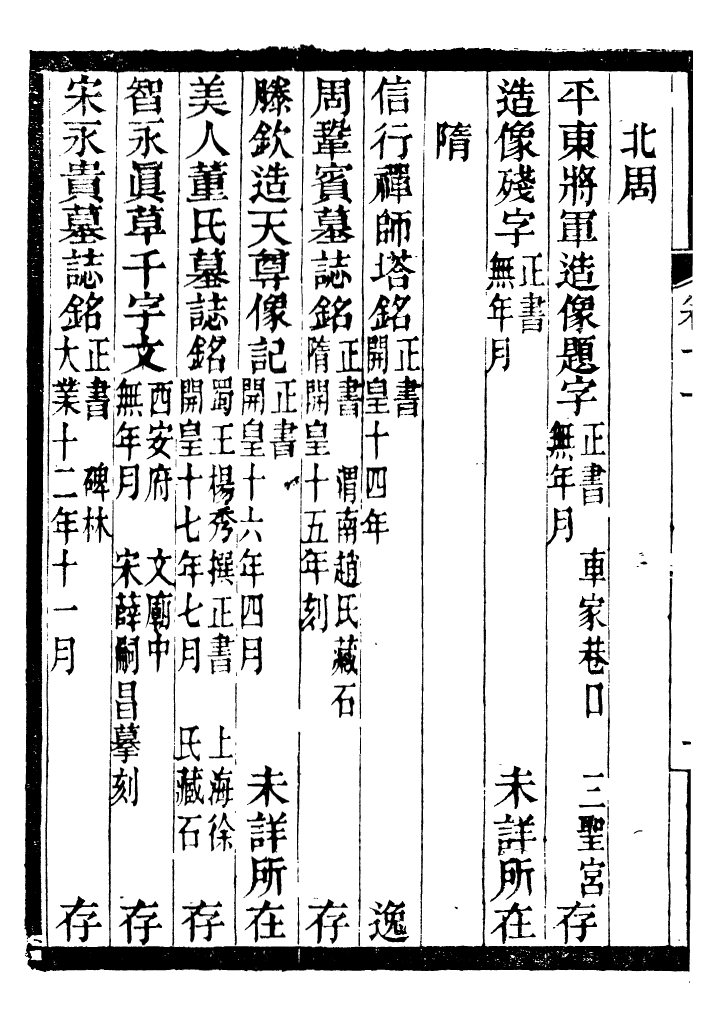 北周
平東將軍造像題字 正書 車家巷口 三聖宮 無年月 存
造像殘字 正書 無年月 未詳所在
隋
信行禪師塔銘 正書 開皇十四年 逸
周鞏賓墓誌銘 正書 渭南趙氏藏石 隋開皇十五年刻 存
滕欽造天尊像記 正書 開皇十六年四月 未詳所在
美人董氏墓誌銘 蜀王楊秀撰正書 上海徐 開皇十七年七月 氏藏石 存
智永眞草千字文 西安府 文廟中 無年月 宋薛嗣昌摹刻 存
宋永貴墓誌銘 正書 碑林 大業十二年十一月 存